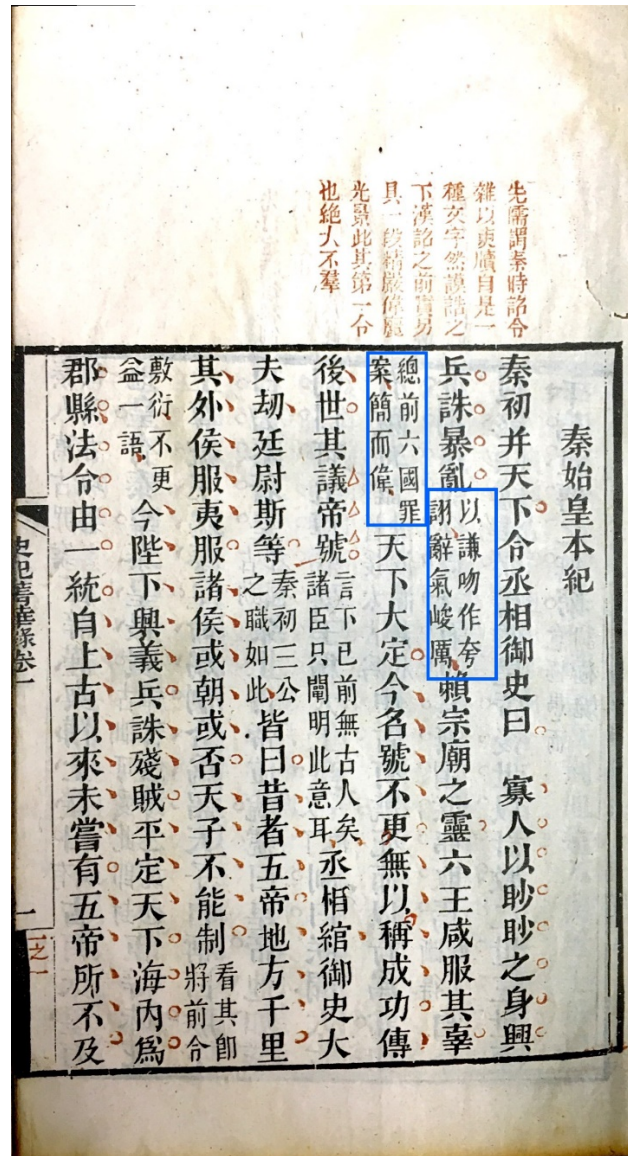 先儒謂秦時詔令
雜以吏牘自是一
種文字然謨誥之
下漢詔之前實另
具一段精嚴偉麗
光景此其第一令
也絶大不羣
秦始皇本紀
秦初并天下令丞相御史曰　寡人以眇眇之身興
兵誅暴亂以謙吻作夸詡辭氣峻厲賴宗廟之靈六王咸服其辜
總前六國罪案簡而偉天下大定今名號不更無以稱成功傳
後世其議帝號言下已前無古人矣諸臣只闡明此意耳丞相綰御史大
夫劫廷尉斯等秦初三公之職如此皆曰昔者五帝地方千里
其外侯服夷服諸侯或朝或否天子不能制看其卽將前令
敷衍不更益一語今陛下興義兵誅殘賊平定天下海內爲
郡縣法令由一統自上古以來未嘗有五帝所不及
史記菁華錄卷一
一